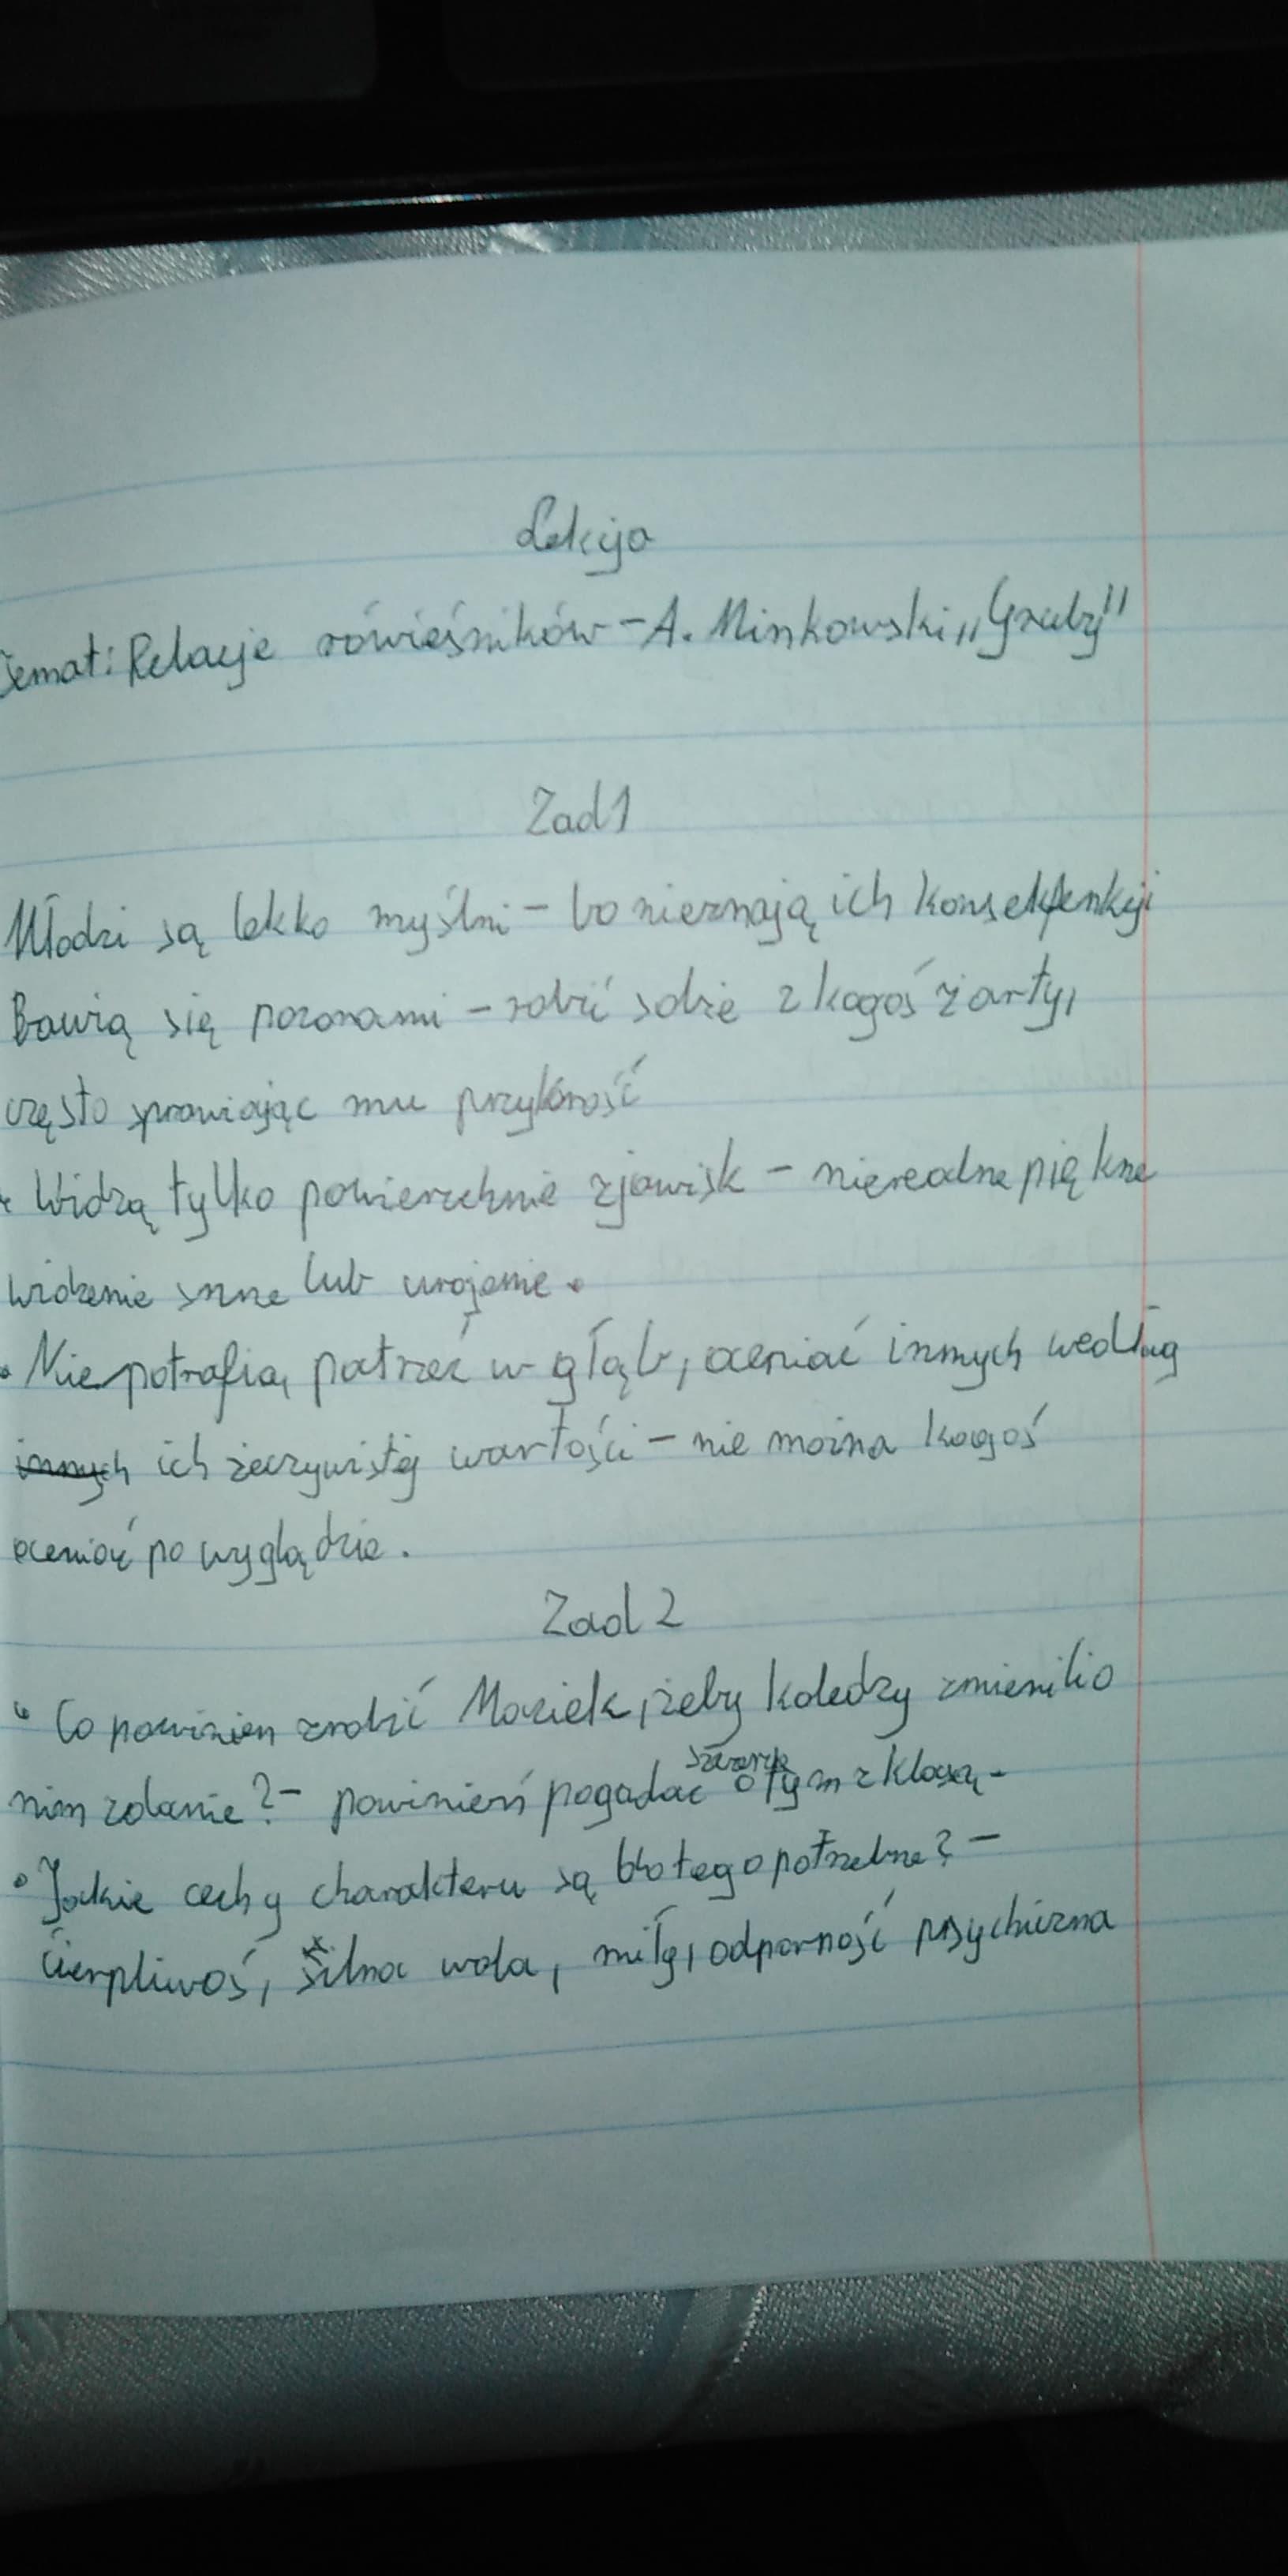 Lekcja
Temat: Relacje rówieśników - A. Minkowski „Gruby"
Zad 1
Młodzi są lekko myślni - bo nieznają ich konsekfenkcji
Bawią się pozorami - robić sobie z kogoś żarty,
często sprawiając mu przykrość
• Widzą tylko powierzchnie zjawisk - nierealne piękne
widzenie senne lub urojenie.
• Nie potrafią patrzeć w głąb, oceniać innych według
innych ich żeczywistej wartości - nie można kogoś
oceniać po wyglądzie.
Zad 2
• Co powinien zrobić Maciek, żeby koledzy zmienili o
nim zdanie? - powinień pogadać szczerze o tym z klasą -
• Jakie cechy charakteru są do tego potrzebne? -
ćierpliwoś, silna wola, miły, odporność psychiczna